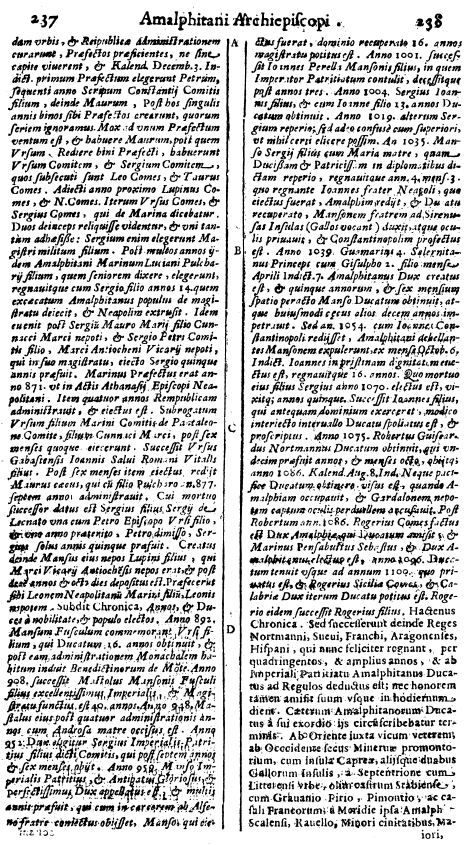 237 Amalphitani Archiepiscopi. 238
dam vrbis, & Reipublicæ administrationem
curarunt, Præfectos præficientes, ne sine
capite viuerent, & Kalend. Decemb. 3. In-
dict. primum Præfectum elegerunt Petrum,
sequenti anno Scripum Constantij Comitis
filium, deinde Maurum, Post hos singulis
annis binos sibi Præfectos crearunt, quorum
seriem ignoramus. Mox ad vnum Præfectum
ventum est, & habuere Maurum, post quem
Vrsum. Rediere bini Præfecti, habuerunt
Vrsum Comitem, & Sergium Comitem,
quos subsecuti sunt Leo Comes, & Taurus
Comes. Adiecti anno proximo Lupinus Co-
mes, & N. Comes. Iterum Vrsus Comes, &
Sergius Comes, qui de Marina dicebatur.
Duos deinceps reliquisse videntur, & vni tan-
tùm adhæsisse: Sergium enim elegerunt Ma-
gistri militum filium. Post multos annos ij-
dem Amalphitani Marinum Luciani Pulcha-
rij filium, quem seniorem dixere, elegerunt,
regnauitque cum Sergio filio annos 14. quem
excæcatum Amalphitanus populus de magi-
stratu deiecit, & Neapolim extrusit. Idem
euenit post Sergiū Mauro Marij filio Cun-
nacci Marci nepoti, & Sergio Petri Comi-
tis filio, Marci Antiocheni Vicarij nepoti,
qui in suo magistratu, eiecto Sergio quinque
annis præfuit. Marinus Præfectus erat an-
no 871. vt in Actis Athanasij Episcopi Nea-
politani. Item quatuor annos Rempublicam
administrauit, & eiectus est. Subrogatum
Vrsum filium Marini Comitis de Pantaleo-
ne Comite, filium Cunnaci Marci, post sex
menses quoque eiecerunt. Successit Vrsus
Gabastensis Ioannis Salui Romani Vitalis
filius. Post sex menses item eiectus, redijt
Maurus cæcus, qui cū filio Pulcharo an. 877.
septem annos administrauit. Cui mortuo
successor datus est Sergius filius Sergij de
Leonato vna cum Petro Episcopo Vrsi filio,
& vno anno prætenito, Petro dimisso, Ser-
gius solus annis quinque præfuit. Creatus
deinde Mansus eius nepos Lupini filius, qui
Marci Vicarij Antiocheni nepos erat, & post
annos & octo dies depositus est. Præfecerunt
sibi Leonem Neapolitanū Marini filiū, Leonis
nepotem. Subdit Chronica, Annos, & Du-
ces à nobilitate, & populo electo. Anno 892.
Mansum Fusculum commemorant Vrsi fi-
lium, qui Ducatum 16. annos obtinuit, &
post eam administrationem Monachalem ha-
bitum induit Benedictinorum de Mōte. Anno
908. successit Mastolus Mansonis Fusculi
filius excellentissimus Imperialis, & Magi-
stratu functus, est 40. annos. Anno 948. Ma-
stalus eius post quatuor administrationis an-
nos cum Androsa matre occisus est. Anno
952. Dux eligitur Sergius Imperialis, Patri-
tius filius dicti Comitis, qui post septem annos
& sex menses obijt. Anno 959. Mansus Im-
perialis Patritius, & Antipatus Gloriosus, &
perfectissimus Dux appellatus est, & multis
annis præfuit, qui cum in carcerem ab Alfe-
no fratre coniectus obijsset. Mansus qui eie-
A
B
C
D
ctus fuerat, dominio recuperato 16. annos
magistratu potitus est. Anno 1001. succes-
sit Ioannes Perelli Mansonis filius, in quem
Imperator Patritiatum contulit, decessitque
post annos tres. Anno 1004. Sergius Ioan-
nis filius, & cum Ioanne filio 13. annos Du-
catum obtinuit. Anno 1019. alterum Ser-
gium reperio, sed adeo confusè cum superiori,
vt nihil certi elicere possim. An 1035. Man-
so Sergij filius cum Maria matre, quam
Ducissam & Patricissam in diplomatibus di-
ctam reperio, regnauitque ann. 4. mens. 3.
quo regnante Ioannes frater Neapoli, quo
eiectus fuerat, Amalphim redijt, & Ducatu
recuperato, Mansonem fratrem ad Sirenu-
sas Insulas (Gallos vocant) duxit, atque ocu-
lis priuauit, & Constantinopolim profectus
est. Anno 1039. Guomarius 4. Salernita-
nus Princeps cum Gisulpho 2. filio mense
Aprili Indict. 7. Amalphitanus Dux creatus
est, & quinque annorum, & sex mensium
spatio peracto Manso Ducatum obtinuit, at-
que huiusmodi cæcus olios decem annos im-
petrauit. Sed an. 1054. cum Ioannes Con-
stantinopoli redijsset, Amalphitani debellan-
tes Mansonem expulerunt, ex mense Octob. 6.
Indict. Ioannes in pristinam dignitatem eue-
ctus est, regnauitque 16. annos. Quo mortuo
eius filius Sergius anno 1070. electus est, vi-
xitq; annos quinque. Successit Ioannes filius,
qui antequam dominium exerceret, modico
interiecto interuallo Ducatu spoliatus est, &
proscriptus. Anno 1075. Robertus Guiscar-
dus Normannus Ducatum obtinuit, qui vn-
decim præfuit annos, & menses octo, obijtq;
anno 1086. Kalend. Aug. 8. Ind. Neque paci-
fice Ducatum obtinere visus est, quando A-
malphiam occupauit, & Gardalonem nepo-
tem captum oculis per duellem accusauit. Post
Robertum ann. 1086. Rogerius Comes factus
est Dux Amalphiæ, qui Ducatum amisit, &
Marinus Pensabuctus Sebastus, & Dux A-
malphitanus electus est anno 1096. Duca-
tum tenuit vsque ad annum 1100. quo pri-
uatus est, & Rogerius Siciliæ Comes, & Ca-
labriæ Dux iterum Ducatu potitus est. Roge-
rio eidem successit Rogerius filius, Hactenus
Chronica. Sed successerunt deinde Reges
Nortmanni, Sueui, Franchi, Aragonenses,
Hispani, qui nunc feliciter regnant, per
quadringentos, & amplius annos, & ab
Imperiali Patritiatu Amalphitanus Duca-
tus ad Regulos deductus est; nec honorem
tamen amisit suum vsque in hodiernum
diem. Cæterum Amalphitanorum Duca-
tus à sui exordio ijs circūscribebatur ter-
minis. Ab Oriente iuxta vicum veterem,
ab Occidente secus Mineruæ promonto-
rium, cum Insula Capreæ, alijsque duabus
Gallorum Insulis, à Septentrione cum
Litterensi vrbe, olim oastrum Stabiense,
cum Grauanio Pirio, Pimontio, ac ca-
sali Franeorum, à Meridie ipsa Amalph
Scalensi, Rauello, Minori ciuitatibus, Ma-
iori,